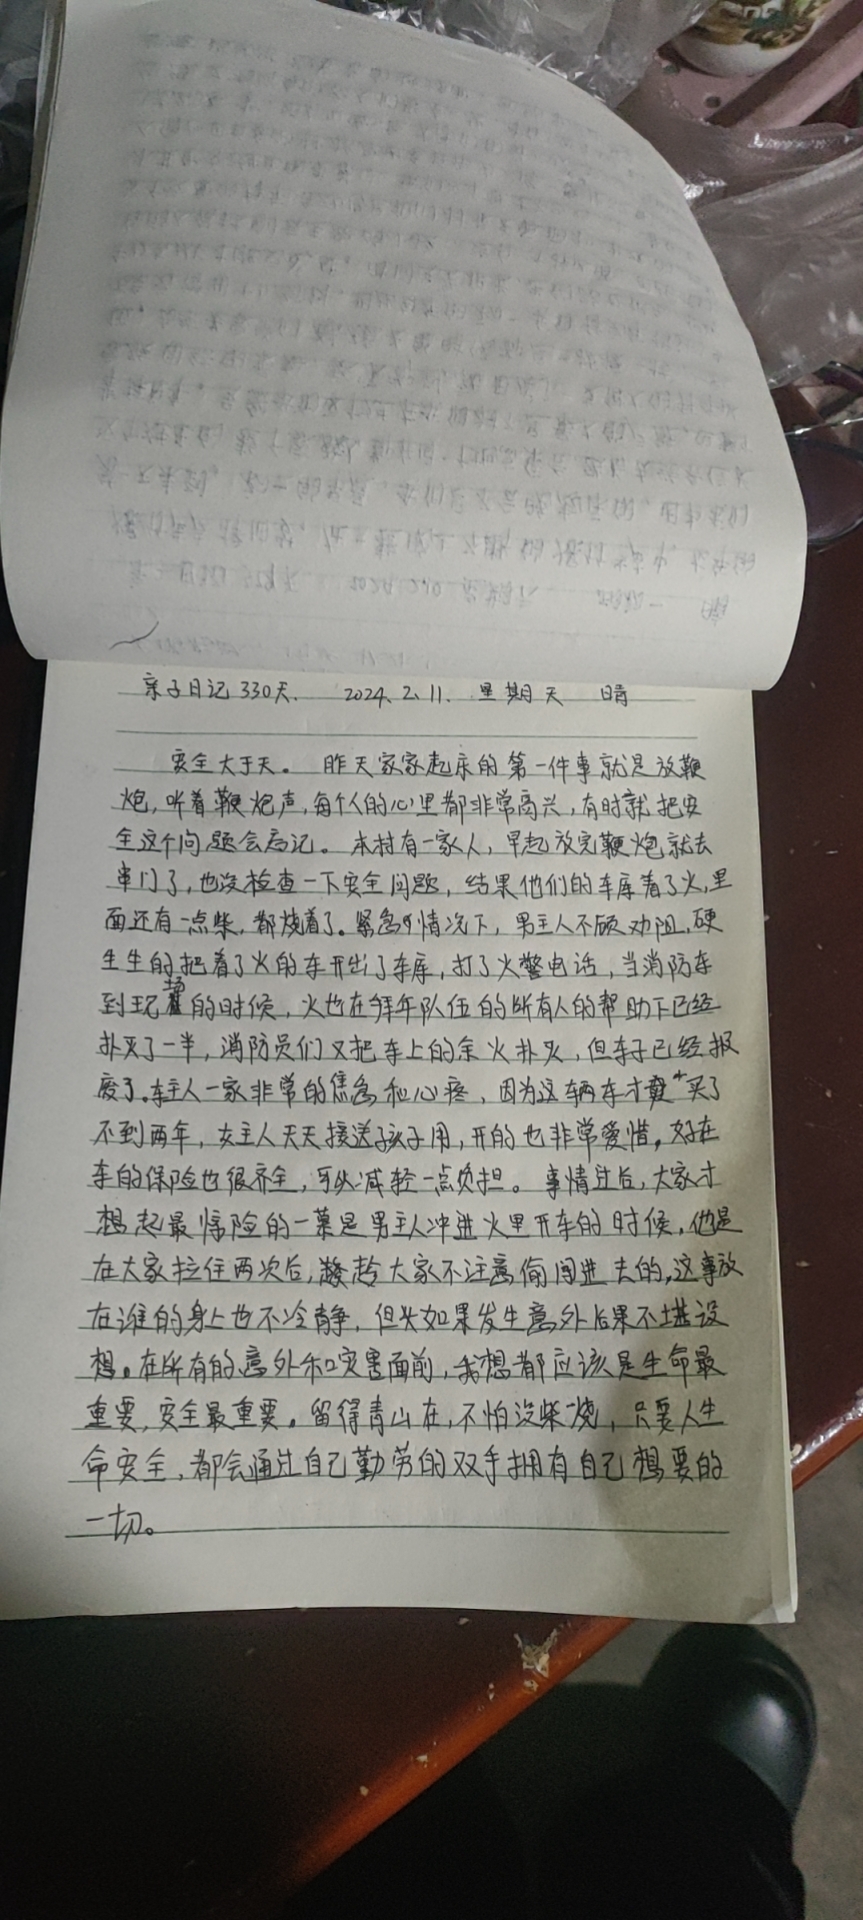 亲子日记330天. 2024.2.11. 星期天 晴
安全大于天。昨天家家起床的第一件事就是放鞭
炮,听着鞭炮声,每个人的心里都非常高兴,有时就把安
全这个问题会忘记。本村有一家人,早起放完鞭炮就去
串门了,也没检查一下安全问题,结果他们的车库着了火,里
面还有一点柴,都烧着了。紧急的情况下,男主人不顾劝阻,硬
生生的把着了火的车开出了车库,打了火警电话,当消防车
到现场的时候,火也在拜年队伍的所有人的帮助下已经
扑灭了一半,消防员们又把车上的余火扑灭,但车子已经报
废了。车主人一家非常的焦急和心疼,因为这辆车才买了
不到两年,女主人天天接送孩子用,开的也非常爱惜。好在
车的保险也很齐全,可以减轻一点负担。事情过后,大家才
想起最惊险的一幕是男主人冲进火里开车的时候,他是
在大家拉住两次后,趁大家不注意偷闯进去的,这事放
在谁的身上也不冷静,但是如果发生意外后果不堪设
想。在所有的意外和灾害面前,我想都应该是生命最
重要,安全最重要。留得青山在,不怕没柴烧,只要人生
命安全,都会通过自己勤劳的双手拥有自己想要的
一切。